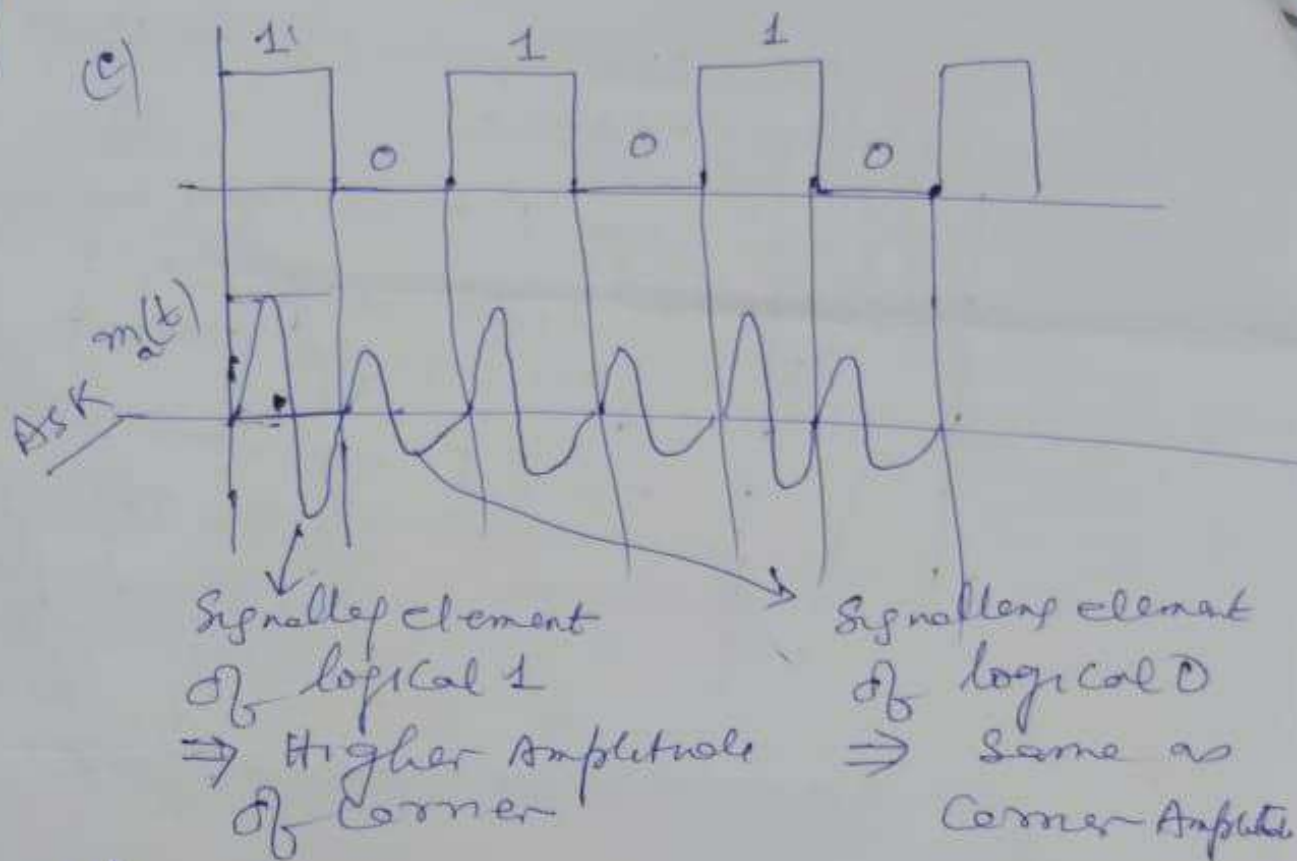 (c)
1 1 1
0 0 0
m_a(t)
ASK
Signalling element
of logical 1
⇒ Higher Amplitude
of Carrier
Signalling element
of logical 0
⇒ Same as
Carrier Amplitude